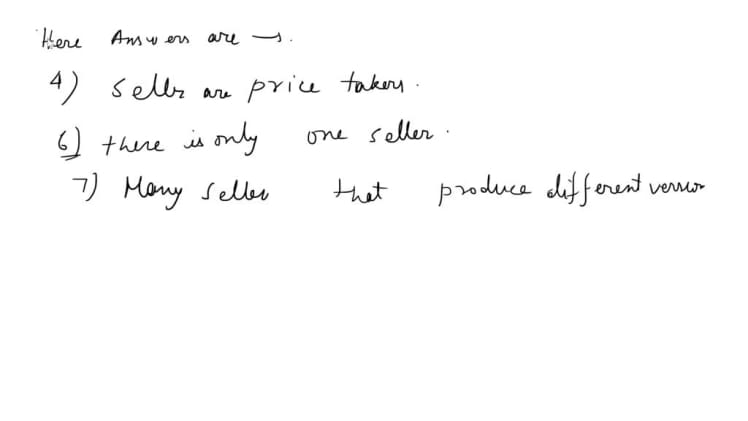 Here Answers are →.
4) Sellers are price takers.
6) there is only one seller.
7) Many seller that produce different version